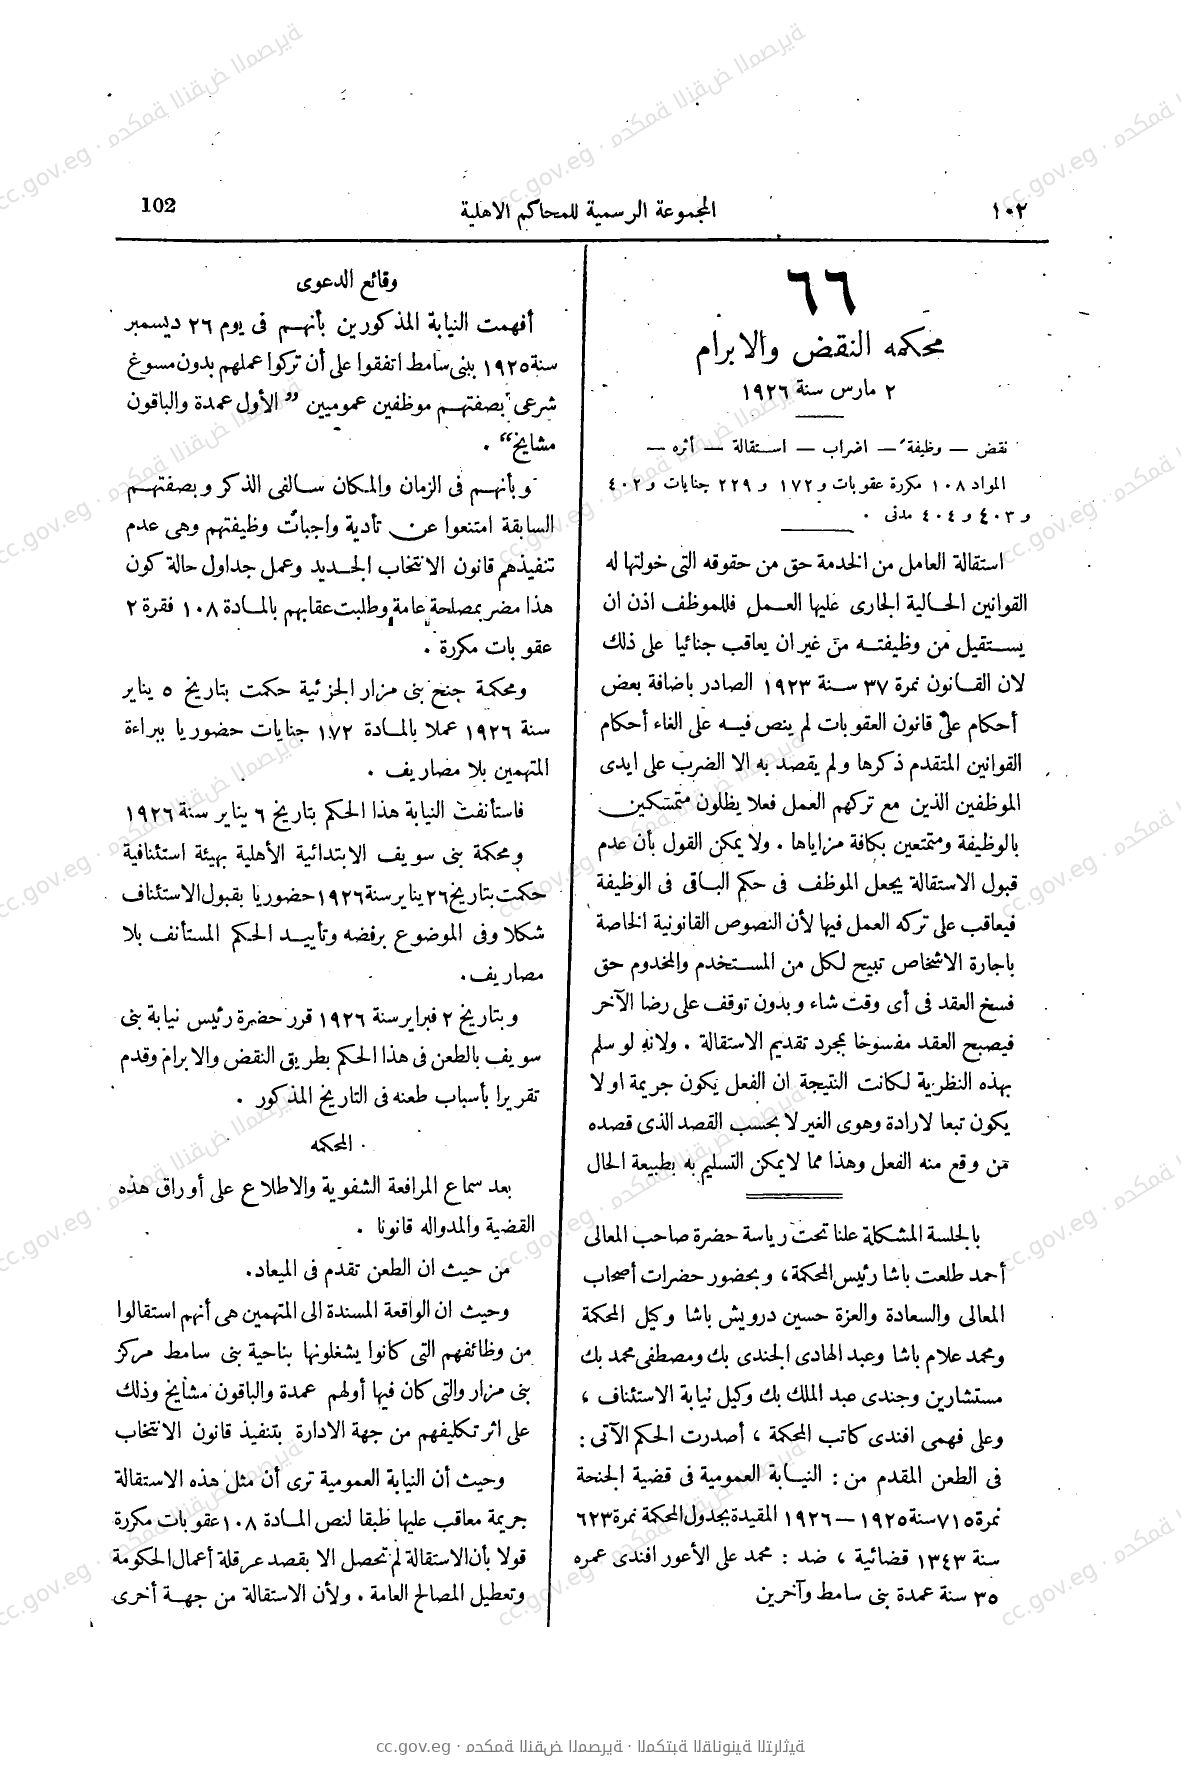 ١٠٢
المجموعة الرسمية للمحاكم الاهلية
102
٦٦
محكمه النقض والابرام
٢ مارس سنة ١٩٢٦
نقض — وظيفة — اضراب — استقالة — أثره —
المواد ١٠٨ مكررة عقوبات و ١٧٢ و ٢٢٩ جنايات و ٤٠٢
و ٤٠٣ و ٤٠٤ مدنى .
استقالة العامل من الخدمة حق من حقوقه التى خولتها له
القوانين الحالية الجارى عليها العمل فللموظف اذن ان
يستقيل من وظيفته من غير ان يعاقب جنائيا على ذلك
لان القانون نمرة ٣٧ سنة ١٩٢٣ الصادر باضافة بعض
أحكام على قانون العقوبات لم ينص فيه على الغاء أحكام
القوانين المتقدم ذكرها ولم يقصد به الا الضرب على ايدى
الموظفين الذين مع تركهم العمل فعلا يظلون متمسكين
بالوظيفة ومتمتعين بكافة مزاياها . ولا يمكن القول بأن عدم
قبول الاستقالة يجعل الموظف فى حكم الباقى فى الوظيفة
فيعاقب على تركه العمل فيها لأن النصوص القانونية الخاصة
باجارة الاشخاص تبيح لكل من المستخدم والمخدوم حق
فسخ العقد فى أى وقت شاء وبدون توقف على رضا الآخر
فيصبح العقد مفسوخا بمجرد تقديم الاستقالة . ولانه لو سلم
بهذه النظرية لكانت النتيجة ان الفعل يكون جريمة او لا
يكون تبعا لارادة وهوى الغير لا بحسب القصد الذى قصده
من وقع منه الفعل وهذا مما لايمكن التسليم به بطبيعة الحال
بالجلسة المشكلة علنا تحت رياسة حضرة صاحب المعالى
أحمد طلعت باشا رئيس المحكمة، وبحضور حضرات أصحاب
المعالى والسعادة والعزة حسين درويش باشا وكيل المحكمة
ومحمد علام باشا وعبد الهادى الجندى بك ومصطفى محمد بك
مستشارين وجندى عبد الملك بك وكيل نيابة الاستئناف ،
وعلى فهمى افندى كاتب المحكمة ، أصدرت الحكم الآتى :
فى الطعن المقدم من : النيابة العمومية فى قضية الجنحة
نمرة ٧١٥ سنة ١٩٢٥ — ١٩٢٦ المقيدة بجدول المحكمة نمرة ٦٢٣
سنة ١٣٤٣ قضائية ، ضد : محمد على الأعور افندى عمره
٣٥ سنة عمدة بنى سامط وآخرين
وقائع الدعوى
أفهمت النيابة المذكورين بأنهم فى يوم ٢٦ ديسمبر
سنة ١٩٢٥ ببنى سامط اتفقوا على أن تركوا عملهم بدون مسوغ
شرعى بصفتهم موظفين عموميين ” الأول عمدة والباقون
مشايخ“ .
وبأنهم فى الزمان والمكان سالفى الذكر وبصفتهم
السابقة امتنعوا عن تأدية واجبات وظيفتهم وهى عدم
تنفيذهم قانون الانتخاب الجديد وعمل جداول حالة كون
هذا مضر بمصلحة عامة وطلبت عقابهم بالمادة ١٠٨ فقرة ٢
عقوبات مكررة .
ومحكمة جنح بنى مزار الجزئية حكمت بتاريخ ٥ يناير
سنة ١٩٢٦ عملا بالمادة ١٧٢ جنايات حضوريا ببراءة
المتهمين بلا مصاريف .
فاستأنفت النيابة هذا الحكم بتاريخ ٦ يناير سنة ١٩٢٦
ومحكمة بنى سويف الابتدائية الأهلية بهيئة استئنافية
حكمت بتاريخ ٢٦ يناير سنة ١٩٢٦ حضوريا بقبول الاستئناف
شكلا وفى الموضوع برفضه وتأييد الحكم المستأنف بلا
مصاريف .
وبتاريخ ٢ فبراير سنة ١٩٢٦ قرر حضرة رئيس نيابة بنى
سويف بالطعن فى هذا الحكم بطريق النقض والابرام وقدم
تقريرا بأسباب طعنه فى التاريخ المذكور .
المحكمه
بعد سماع المرافعة الشفوية والاطلاع على أوراق هذه
القضية والمداوله قانونا .
من حيث ان الطعن تقدم فى الميعاد .
وحيث ان الواقعة المسندة الى المتهمين هى أنهم استقالوا
من وظائفهم التى كانوا يشغلونها بناحية بنى سامط مركز
بنى مزار والتى كان فيها أولهم عمدة والباقون مشايخ وذلك
على اثر تكليفهم من جهة الادارة بتنفيذ قانون الانتخاب
وحيث أن النيابة العمومية ترى أن مثل هذه الاستقالة
جريمة معاقب عليها طبقا لنص المادة ١٠٨ عقوبات مكررة
قولا بأن الاستقالة لم تحصل الا بقصد عرقلة أعمال الحكومة
وتعطيل المصالح العامة . ولأن الاستقالة من جهة أخرى
cc.gov.eg · محكمة النقض المصرية · المكتبة القانونية التراثية